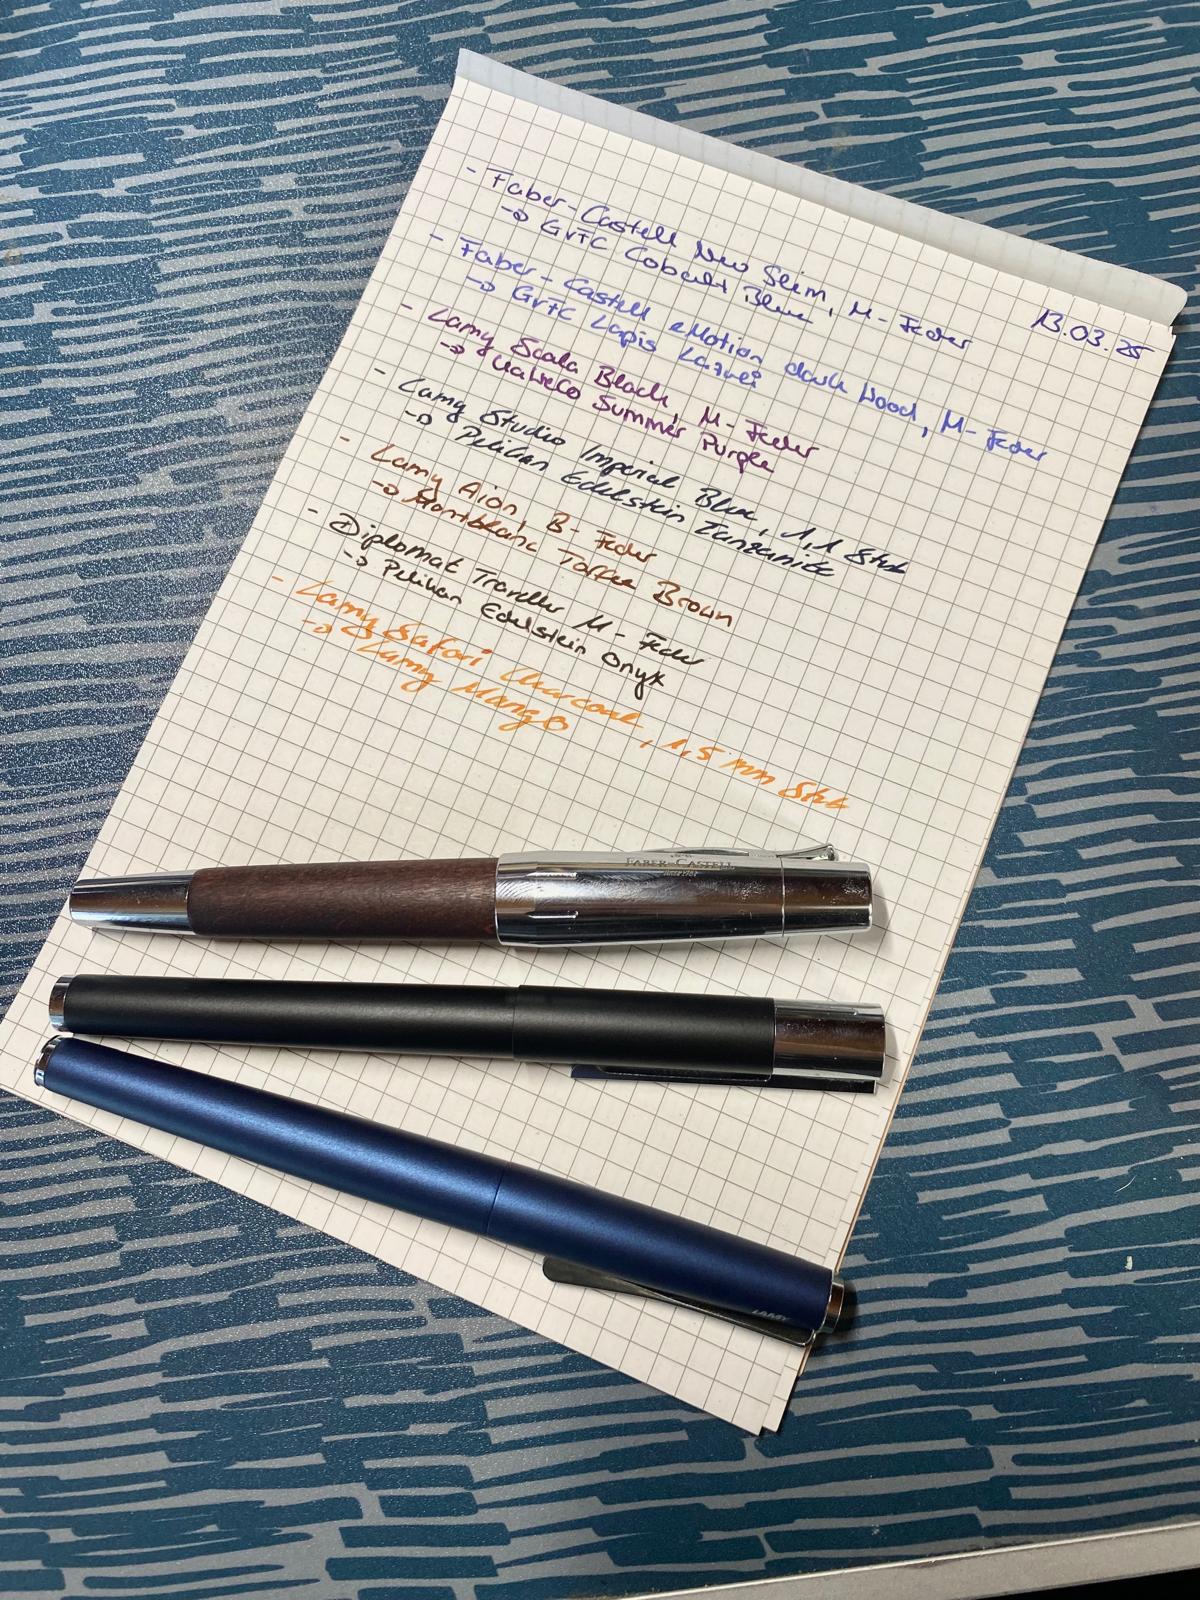 13.03.25
- Faber-Castell Neo Slim, M-Feder
→ GvFC Cobalt Blue
- Faber-Castell eMotion dark Wood, M-Feder
→ GvFC Lapis Lazuli
- Lamy Scala Black, M-Feder
→ KaWeCo Summer Purple
- Lamy Studio Imperial Blue, 1,1 Stub
→ Pelikan Edelstein Tanzanite
- Lamy Aion, B-Feder
→ Montblanc Toffee Brown
- Diplomat Traveller M-Feder
→ Pelikan Edelstein Onyx
- Lamy Safari Charcoal, 1,5 mm Stub
→ Lamy Mango
FABER-CASTELL
LAMY